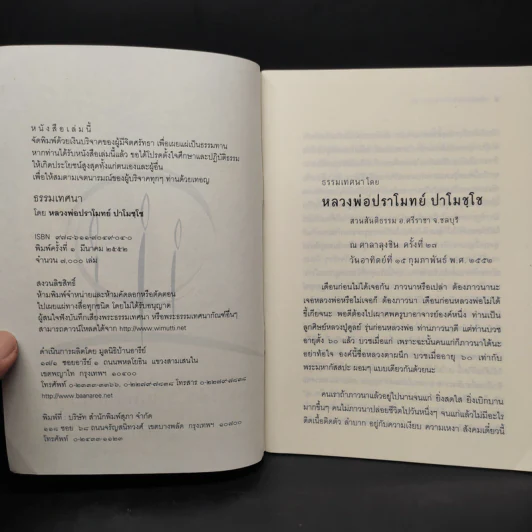 ห นั ง สื อ เ ล่ ม นี้
จัดพิมพ์ด้วยเงินบริจาคของผู้มีจิตศรัทธา เพื่อเผยแผ่เป็นธรรมทาน
หากท่านได้รับหนังสือเล่มนี้แล้ว ขอได้โปรดตั้งใจศึกษาและปฏิบัติธรรม
ให้เกิดประโยชน์สูงสุดทั้งแก่ตนเองและผู้อื่น
เพื่อให้สมตามเจตนารมณ์ของผู้บริจาคทุกๆ ท่านด้วยเทอญ
ธรรมเทศนา
โดย หลวงพ่อปราโมทย์ ปาโมชฺโช
ISBN ๙๗๘๖๑๑๗๐๔๙๐๔๐
พิมพ์ครั้งที่ ๑ มีนาคม ๒๕๕๒
จำนวน ๗,๐๐๐ เล่ม
สงวนลิขสิทธิ์
ห้ามพิมพ์จำหน่ายและห้ามคัดลอกหรือตัดตอน
ไปเผยแผ่ทางสื่อทุกชนิด โดยไม่ได้รับอนุญาต
ผู้สนใจฟังบันทึกเสียงพระธรรมเทศนา หรือพระธรรมเทศนากัณฑ์อื่นๆ
สามารถดาวน์โหลดได้จาก http://www.wimutti.net
ดำเนินการผลิตโดย มูลนิธิบ้านอารีย์
๑๗๑ ซอยอารีย์ ๑ ถนนพหลโยธิน แขวงสามเสนใน
เขตพญาไท กรุงเทพฯ ๑๐๔๐๐
http://www.baanaree.net
พิมพ์ที่ : บริษัท สำนักพิมพ์สุภา จำกัด
๑๑๘ ซอย ๖๘ ถนนจรัญสนิทวงศ์ เขตบางพลัด กรุงเทพฯ ๑๐๗๐๐
โทรศัพท์ ๐-๒๔๓๓-๑๑๒๓
ธรรมเทศนาโดย
หลวงพ่อปราโมทย์ ปาโมชฺโช
สวนสันติธรรม อ.ศรีราชา จ.ชลบุรี
ณ ศาลาลุงชิน ครั้งที่ ๒๗
วันอาทิตย์ที่ ๑๕ กุมภาพันธ์ พ.ศ. ๒๕๕๒
เดือนก่อนไม่ได้เจอกัน ภาวนาหรือเปล่า ต้องภาวนานะ
เจอหลวงพ่อหรือไม่เจอก็ ต้องภาวนา เดือนก่อนหลวงพ่อไม่ได้
ขี้เกียจนะ พอดีต้องไปเผาศพครูบาอาจารย์องค์หนึ่ง ท่านเป็น
ลูกศิษย์หลวงปู่ดูลย์ รุ่นก่อนหลวงพ่อ ท่านภาวนาดี แต่ท่านบวช
อายุตั้ง ๖๐ แล้ว บวชเมื่อแก่ เพราะฉะนั้นคนแก่ก็ภาวนาได้นะ
อย่าท้อใจ องค์นี้ชื่อหลวงตาผนึก บวชเมื่ออายุ ๖๐ เท่ากับ
พระมหากัสสปะ ผอมๆ แบบเดียวกันด้วยนะ
คนเราถ้าภาวนาแล้วอยู่ไปนานจนแก่ ยิ่งสดใส ยิ่งเบิกบาน
มากขึ้นๆ คนไม่ภาวนาปล่อยชีวิตไปวันหนึ่งๆ จนแก่แล้วไม่มีอะไร
ติดเนื้อติดตัว ลำบาก อยู่กับความเงียบ ความเหงา สังคมเดี๋ยวนี้